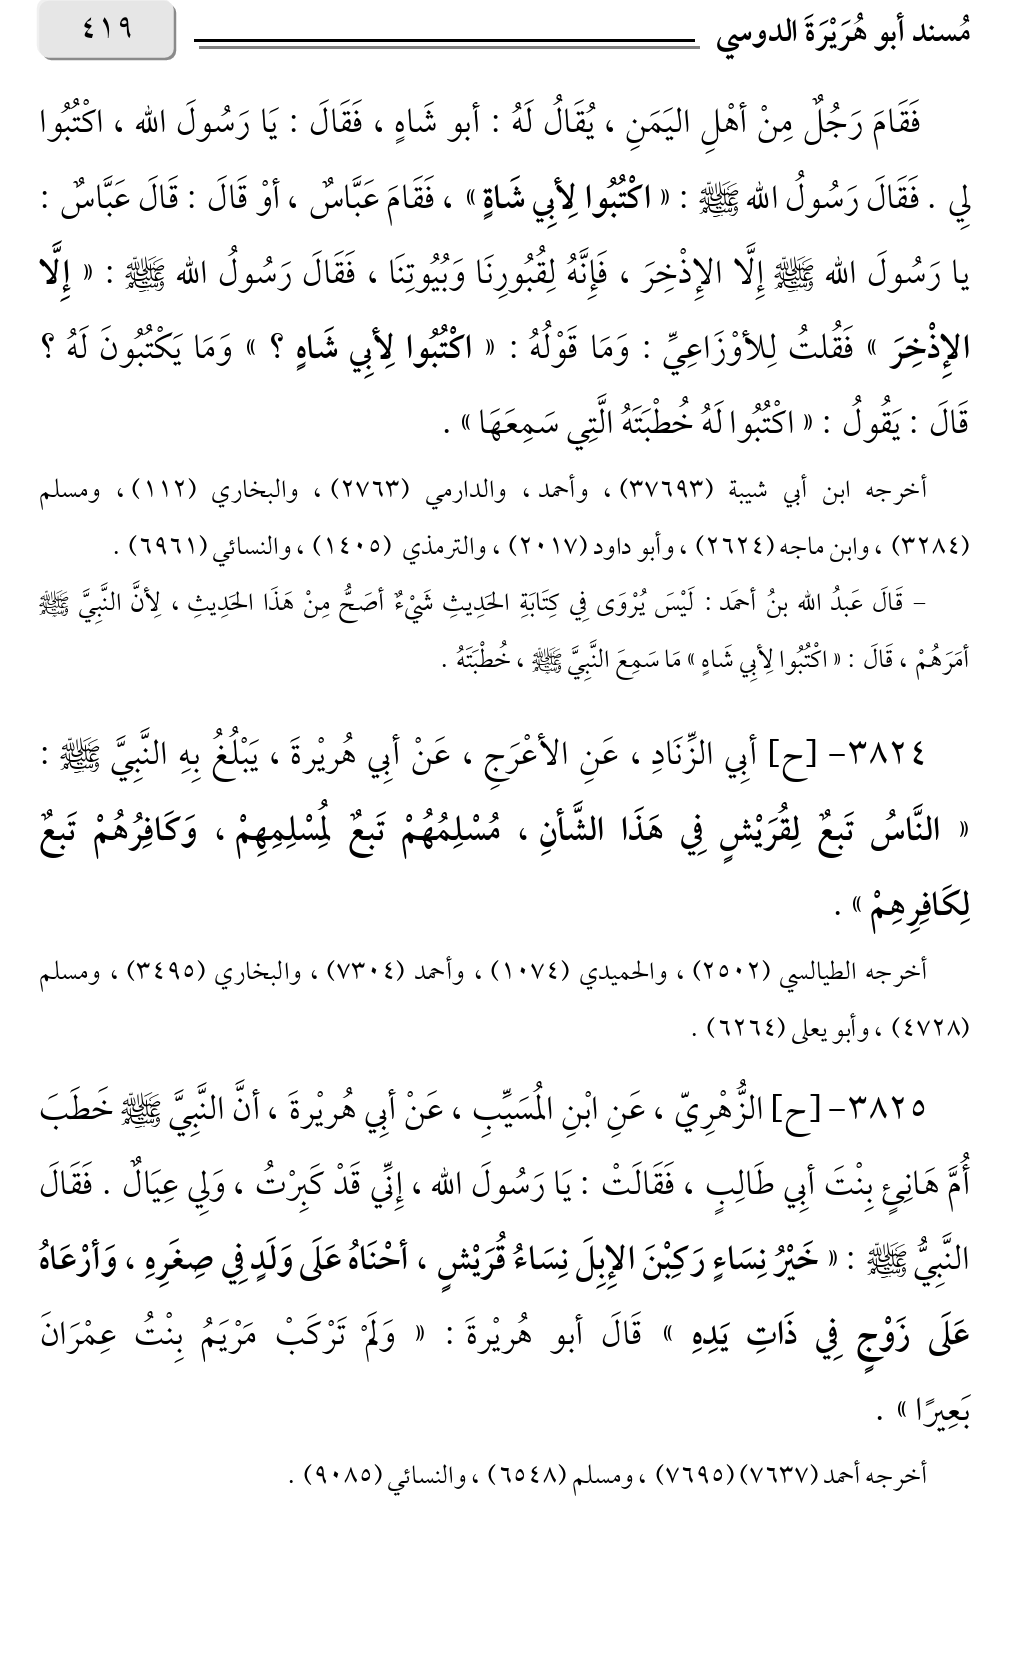 مُسند أبو هُرَيْرَةَ الدوسي
٤١٩
فَقَامَ رَجُلٌ مِنْ أهْلِ اليَمَنِ ، يُقَالُ لَهُ : أبو شَاهٍ ، فَقَالَ : يَا رَسُولَ الله ، اكْتُبُوا
لِي . فَقَالَ رَسُولُ الله ﷺ : « اكْتُبُوا لِأبِي شَاةٍ » ، فَقَامَ عَبَّاسٌ ، أوْ قَالَ : قَالَ عَبَّاسٌ :
يا رَسُولَ الله ﷺ إِلَّا الإِذْخِرَ ، فَإِنَّهُ لِقُبُورِنَا وَبُيُوتِنَا ، فَقَالَ رَسُولُ الله ﷺ : « إِلَّا
الإِذْخِرَ » فَقُلتُ لِلأوْزَاعِيِّ : وَمَا قَوْلُهُ : « اكْتُبُوا لِأبِي شَاهٍ ؟ » وَمَا يَكْتُبُونَ لَهُ ؟
قَالَ : يَقُولُ : « اكْتُبُوا لَهُ خُطْبَتَهُ الَّتِي سَمِعَهَا » .
أخرجه ابن أبي شيبة (٣٧٦٩٣) ، وأحمد ، والدارمي (٢٧٦٣) ، والبخاري (١١٢) ، ومسلم
(٣٢٨٤) ، وابن ماجه (٢٦٢٤) ، وأبو داود (٢٠١٧) ، والترمذي (١٤٠٥) ، والنسائي (٦٩٦١) .
– قَالَ عَبدُ الله بنُ أحمَد : لَيْسَ يُرْوَى فِي كِتَابَةِ الحَدِيثِ شَيْءٌ أصَحُّ مِنْ هَذَا الحَدِيثِ ، لِأنَّ النَّبِيَّ ﷺ
أمَرَهُمْ ، قَالَ : « اكْتُبُوا لِأبِي شَاهٍ » مَا سَمِعَ النَّبِيَّ ﷺ ، خُطْبَتَهُ .
٣٨٢٤– [ح] أبِي الزِّنَادِ ، عَنِ الأعْرَجِ ، عَنْ أبِي هُريْرةَ ، يَبْلُغُ بِهِ النَّبِيَّ ﷺ :
« النَّاسُ تَبعٌ لِقُرَيْشٍ فِي هَذَا الشَّأنِ ، مُسْلِمُهُمْ تَبعٌ لمُسْلِمِهِمْ ، وَكَافِرُهُمْ تَبعٌ
لِكَافِرِهِمْ » .
أخرجه الطيالسي (٢٥٠٢) ، والحميدي (١٠٧٤) ، وأحمد (٧٣٠٤) ، والبخاري (٣٤٩٥) ، ومسلم
(٤٧٢٨) ، وأبو يعلى (٦٢٦٤) .
٣٨٢٥– [ح] الزُّهْرِيّ ، عَنِ ابْنِ المُسَيِّبِ ، عَنْ أبِي هُريْرةَ ، أنَّ النَّبِيَّ ﷺ خَطَبَ
أُمَّ هَانِئٍ بِنْتَ أبِي طَالِبٍ ، فَقَالَتْ : يَا رَسُولَ الله ، إِنِّي قَدْ كَبِرْتُ ، وَلِي عِيَالٌ . فَقَالَ
النَّبِيُّ ﷺ : « خَيْرُ نِسَاءٍ رَكِبْنَ الإِبِلَ نِسَاءُ قُرَيْشٍ ، أحْنَاهُ عَلَى وَلَدٍ فِي صِغَرِهِ ، وَأرْعَاهُ
عَلَى زَوْجٍ فِي ذَاتِ يَدِهِ » قَالَ أبو هُريْرةَ : « وَلَمْ تَرْكَبْ مَرْيَمُ بِنْتُ عِمْرَانَ
بَعِيرًا » .
أخرجه أحمد (٧٦٣٧) (٧٦٩٥) ، ومسلم (٦٥٤٨) ، والنسائي (٩٠٨٥) .